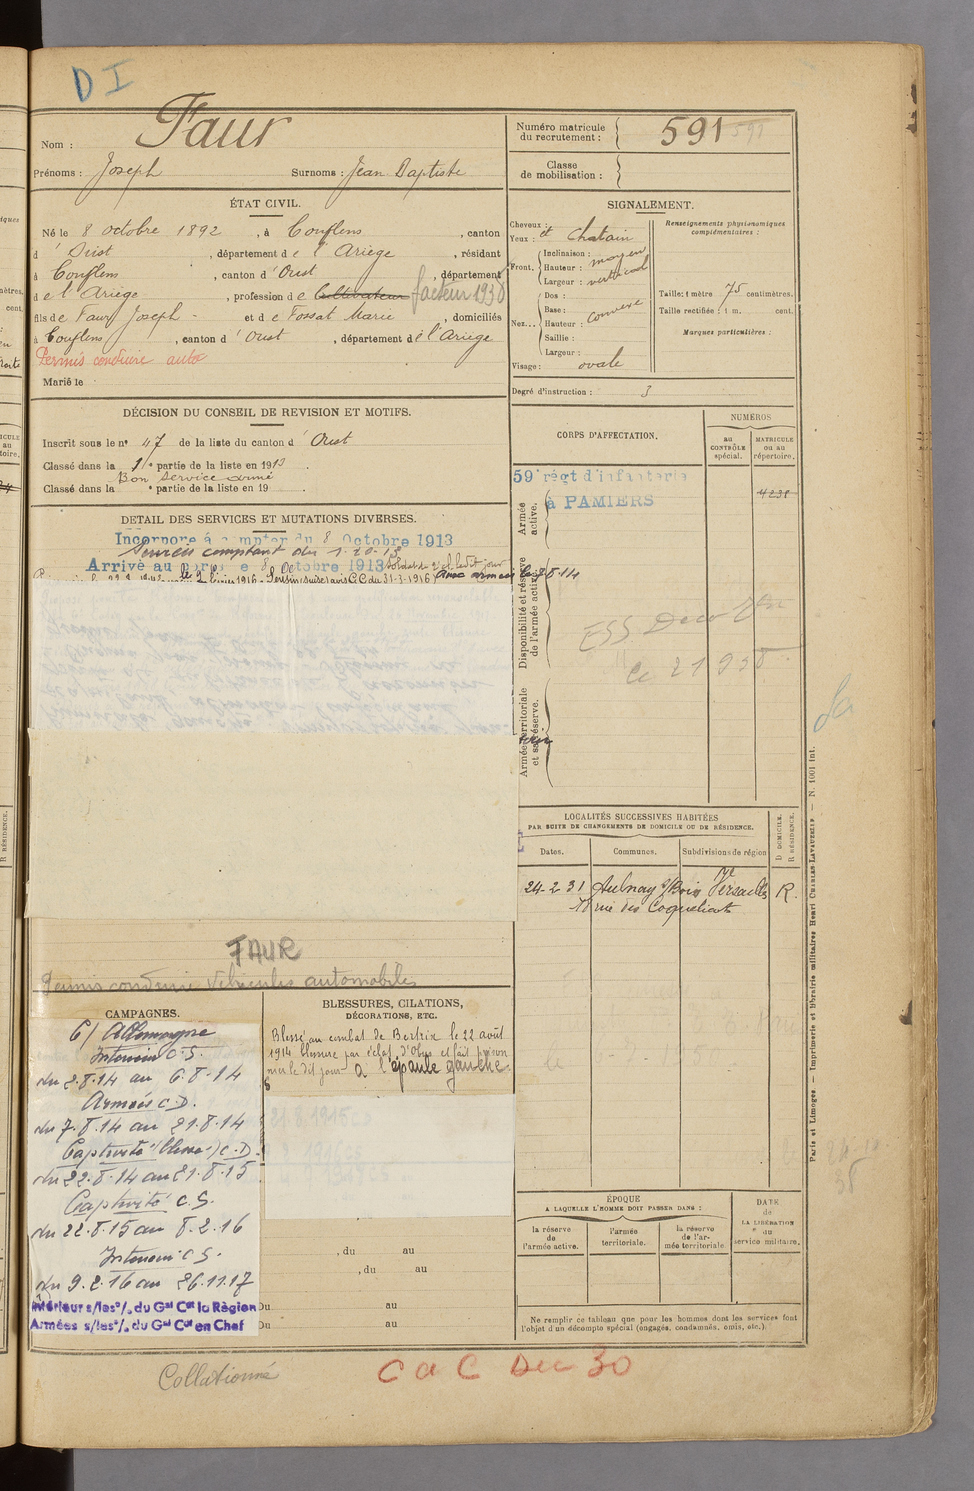 D I
Nom : Faur
Prénoms : Joseph Surnoms : Jean Baptiste
Numéro matricule du recrutement : 591 591
Classe de mobilisation :
ÉTAT CIVIL.
Né le 8 octobre 1892, à Couflens, canton
d' Oust, département de l'Ariège, résidant
à Couflens, canton d'Oust, département
de l'Ariège, profession de Cultivateur facteur 1938
fils de Faur Joseph - et de Fossat Marie, domiciliés
à Couflens, canton d'Oust, département de l'Ariège
Permis conduire auto
Marié le
SIGNALEMENT.
Cheveux : et Chatain
Yeux :
Front. Inclinaison : moyen
Hauteur : vertical
Largeur :
Nez... Dos :
Base :
Hauteur : convexe
Saillie :
Largeur :
Visage : ovale
Renseignements physionomiques complémentaires :
Taille : 1 mètre 75 centimètres.
Taille rectifiée : 1 m. cent.
Marques particulières :
Degré d'instruction : 3
DÉCISION DU CONSEIL DE REVISION ET MOTIFS.
Inscrit sous le n° 47 de la liste du canton d'Oust
Classé dans la 1e partie de la liste en 1913.
Bon service armé
Classé dans la e partie de la liste en 19 .
CORPS D'AFFECTATION.
NUMÉROS
au CONTRÔLE spécial.
MATRICULE ou au répertoire.
59e régt d'infanterie
à PAMIERS
4238
Armée active.
Disponibilité et réserve de l'armée active.
Armée territoriale et sa réserve.
ESS Deco
le 21 938
DETAIL DES SERVICES ET MUTATIONS DIVERSES.
Incorporé à compter du 8 Octobre 1913
Services comptant du 1-10-13
Arrivé au corps le 8 Oct 1913 soldat de 2e cl. le dit jour
FAUR
Permis conduire véhicules automobiles
LOCALITÉS SUCCESSIVES HABITÉES
PAR SUITE DE CHANGEMENTS DE DOMICILE OU DE RÉSIDENCE.
Dates. Communes. Subdivisions de région D DOMICILE. R RÉSIDENCE.
24-2-31 Aulnay s/Bois Versailles R.
rue des Coquelicots
CAMPAGNES.
C/ Allemagne
Intérieur C.S.
du 2.8.14 au 6.8.14
Armées C.D.
du 7.8.14 au 21.8.14
Captivité (blessé) C.D.
du 22.8.14 au 21.8.15
Captivité C.S.
du 22.8.15 au 8.2.16
Intérieur C.S.
du 9.2.16 au 26.11.17
Intérieur s/les °/. du Gal Ct la Région
Armées s/les °/. du Gal Ct en Chef
BLESSURES, CITATIONS, DÉCORATIONS, ETC.
Blessé au combat de Bertrix le 22 août
1914 blessure par éclat d'obus et fait prison
nier le dit jour - à l'épaule gauche.
, du au
, du au
Du au
Du au
ÉPOQUE
A LAQUELLE L'HOMME DOIT PASSER DANS :
la réserve de l'armée active.
l'armée territoriale.
la réserve de l'armée territoriale
DATE de LA LIBÉRATION du service militaire.
Ne remplir ce tableau que pour les hommes dont les services font
l'objet d'un décompte spécial (engagés, condamnés, omis, etc.).
Paris et Limoges. — Imprimerie et librairie militaires Henri CHARLES-LAVAUZELLE. — N. 1001 Int.
Collationné
C a C Dec 30